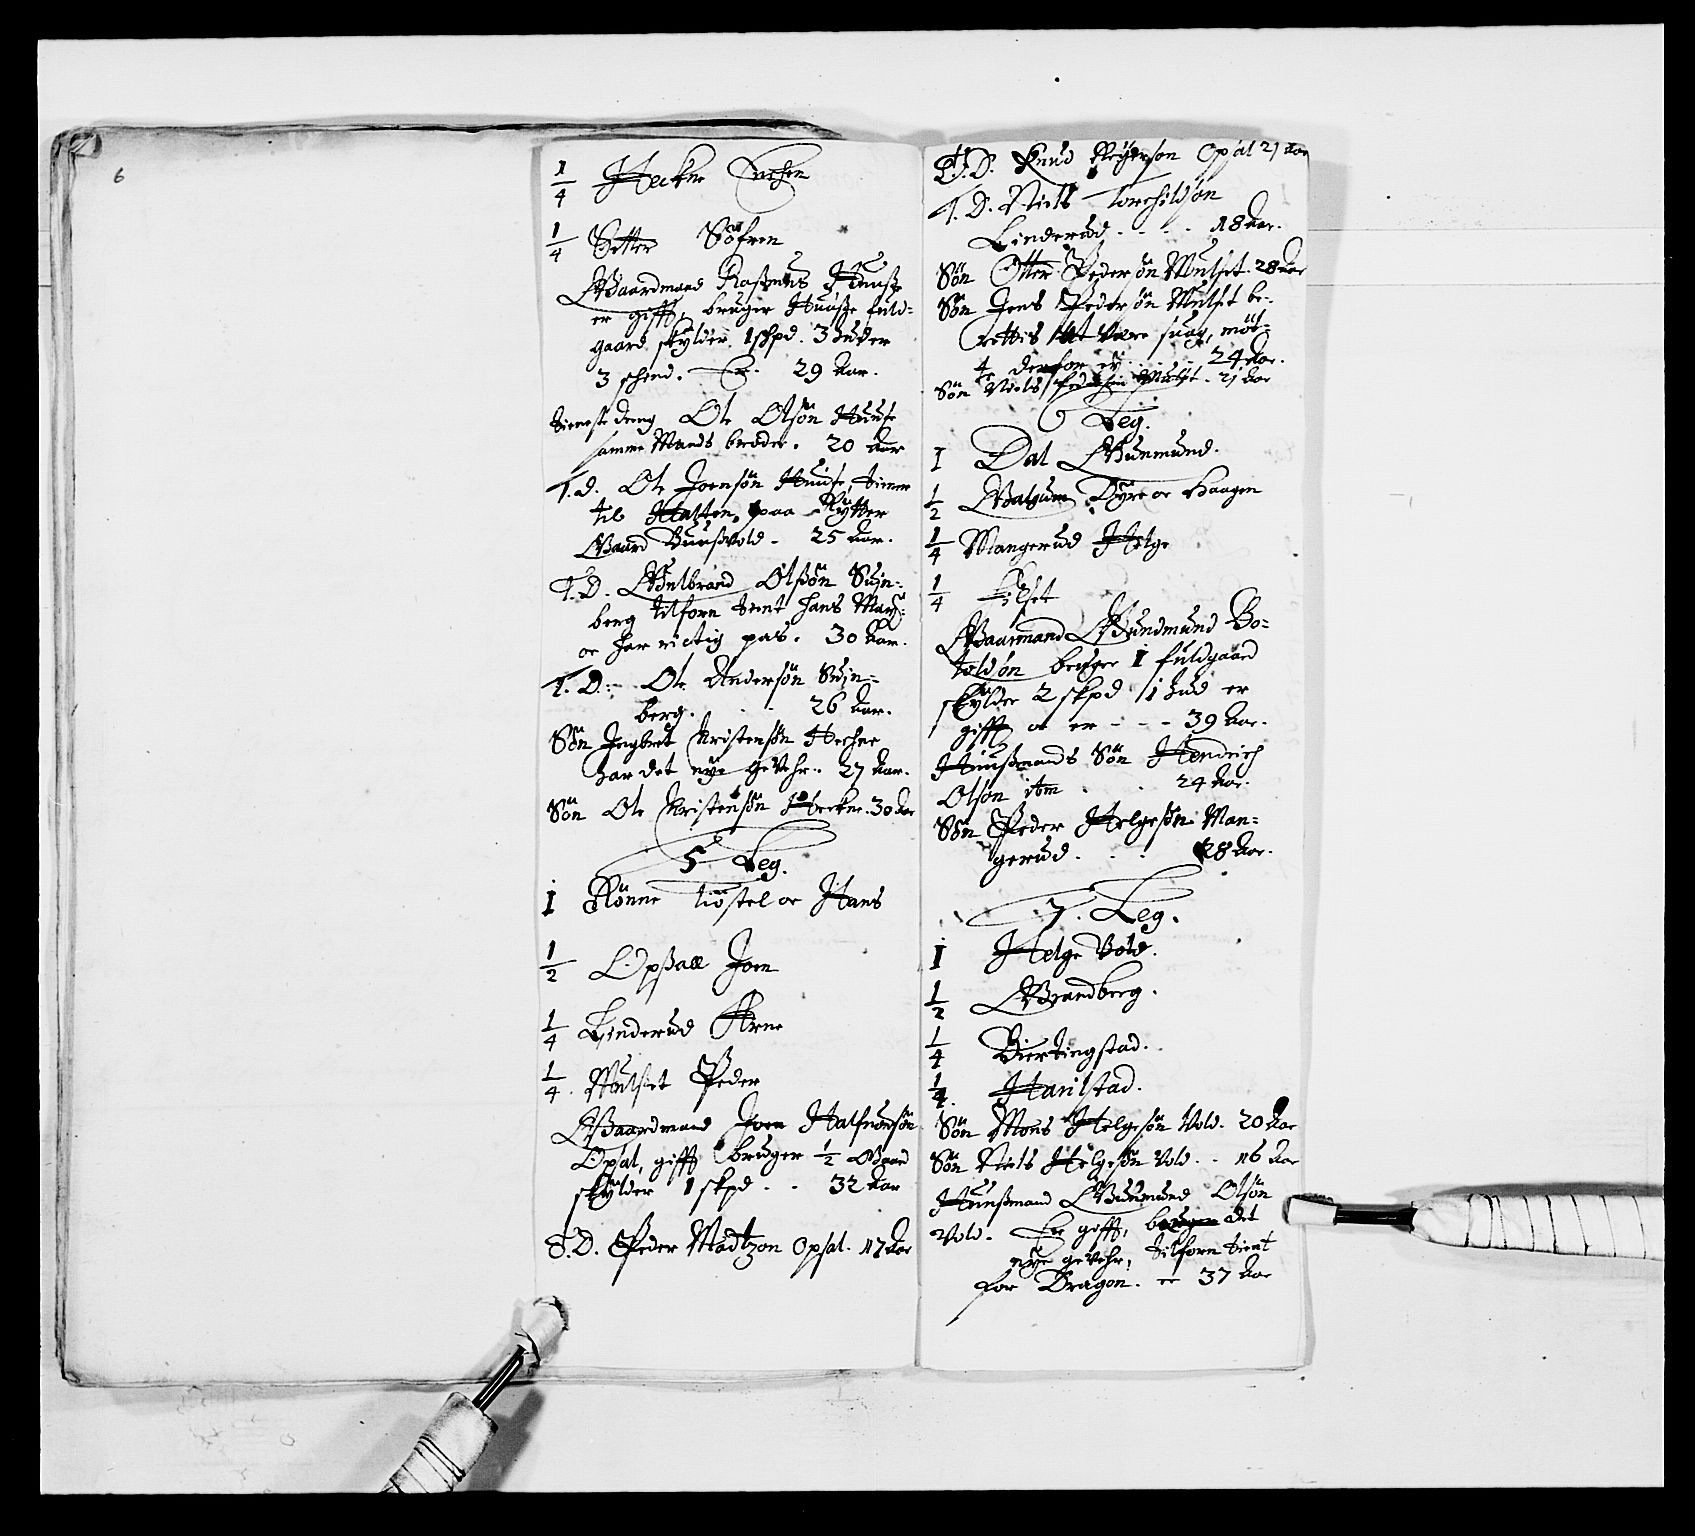 6
1/4 Hecker
1/4 Sitter Söfren
Gaardmand Rasmus Huuse
er gifft, bruger Huuse fuld-
gaard skylder 1 skpd. 3 huder
3 schind. Er 29 Aar.
tieniste dreng Ole Olsön Huuse
samme Mands broder. 20 Aar
T. D. Ole Joensön Huuse, tiener
til paa Rytter
Gaard Buusvold - 25 Aar.
T. D. Gulbrand Olsön Suin-
berg tilforn tient hans May:
oc har rictig pas. 30 Aar.
T. D. Ole Andersön Suin-
berg. - - 26 Aar.
Sön Ingbret Kristensön Hechne
har det nye gevehr. 27 Aar.
Sön Ole Kristensön Heckne. 30 Aar
5 Leg.
1 Rönne Tiöstel oc Hans
1/2 Opsall Joen
1/4 Linderud Arne
1/4. Mulset Peder
Gaardmand Joen Halfuorsön
Opsal, gifft bruger 1/2 Gaard
skylder 1 skpd - - 32 Aar
T. D. Peder Madtzon Opsal. 17 Aar
T. D. Knud Opsal 21 Aar
T. D. Niels Torchildsön
Linderud - - - - 18 Aar.
Sön Otter Pedersön Mulset. 28 Aar
Sön Jens Pedersön Mulset be-
rettis at være suag, möt-
te derfor ey - - - 24 Aar.
Sön Niels Pedersön Mulset. 21 Aar
6 Leg.
1 Dal Gunmund.
1/2 Galgum Dyre oc Haagen
1/4 Mangerud Helge
1/4 Filset
Gaarmand Gundmund Bo-
tolsön bruger 1 fuldgaard
skylder 2 skpd 1 hud er
gifft oc er - - - 39 Aar.
Huusmands Sön Hendrich
Olson ibm - - 24 Aar.
Sön Peder Helgesön Man-
gerud. - - - 28 Aar.
7. Leg.
1 Helge Vold.
1/2 Grandberg.
1/4 Biertingstad.
1/4. Harilstad.
Sön Mons Helgesön Vold. 20 Aar
Sön Niels Helgesön Vold. - 16 Aar
Huusmand Gunmund Olsön
Vold. Er gifft, det
nye gevehr, tilforn tient
for Dragon. er 37 Aar